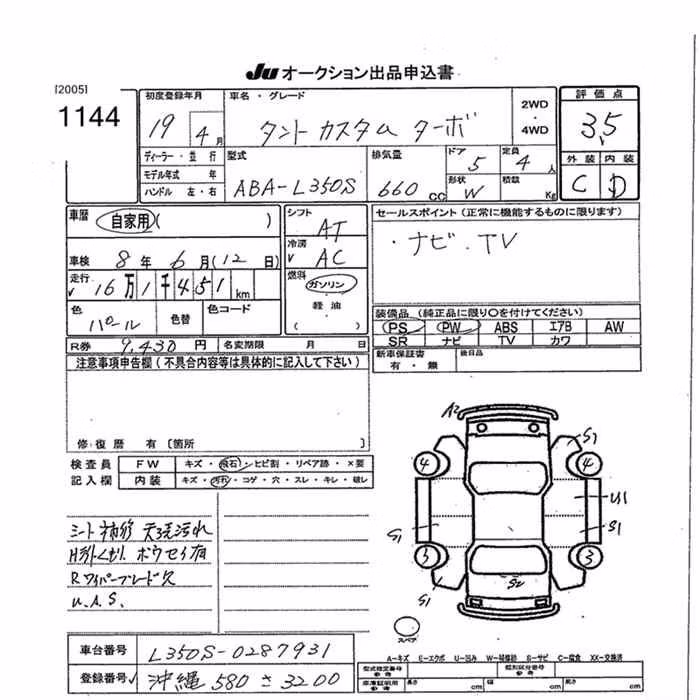 JU オークション出品申込書
[2005]
1144
初度登録年月 19 4月
車名・グレード タント カスタム ターボ
2WD・4WD
評価点 3,5
外装 内装
C D
ディーラー・並行
モデル年式 年
ハンドル 左・右
型式 ABA-L350S
排気量 660 CC
ドア 5
定員 4人
形状 W
積載 Kg
車歴 自家用( )
シフト AT
冷房 AC
燃料 ガソリン
軽油
( )
車検 8年 6月(12日)
走行 16万1千451km
色 パール
色替
色コード
R券 9,430円
名変期限 月 日
セールスポイント(正常に機能するものに限ります)
・ナビ.TV
装備品(純正品に限り○を付けてください)
PS PW ABS エアB AW
SR ナビ TV カワ
新車保証書 有・無
後日品
注意事項申告欄(不具合内容等は具体的に記入して下さい)
修復歴 有〔箇所 〕
検査員 FW キズ・飛石・ヒビ割・リペア跡・×要
記入欄 内装 キズ・汚れ・コゲ・穴・スレ・キレ・破レ
シート補修 天張汚れ
Rワイパーブレード欠
U.A.S.
A2
S1
4 4
U1
S1 S1
3 3
S1
S2
スペア
車台番号 L350S-0287931
登録番号 沖縄 580 さ 3200
A-キズ E-エクボ U-凹み W-補修跡 S-サビ C-腐食 XX-交換済
型式指定番号 参考
類別区分番号 参考
車庫証明用 参考
長さ cm 幅 cm 高さ cm